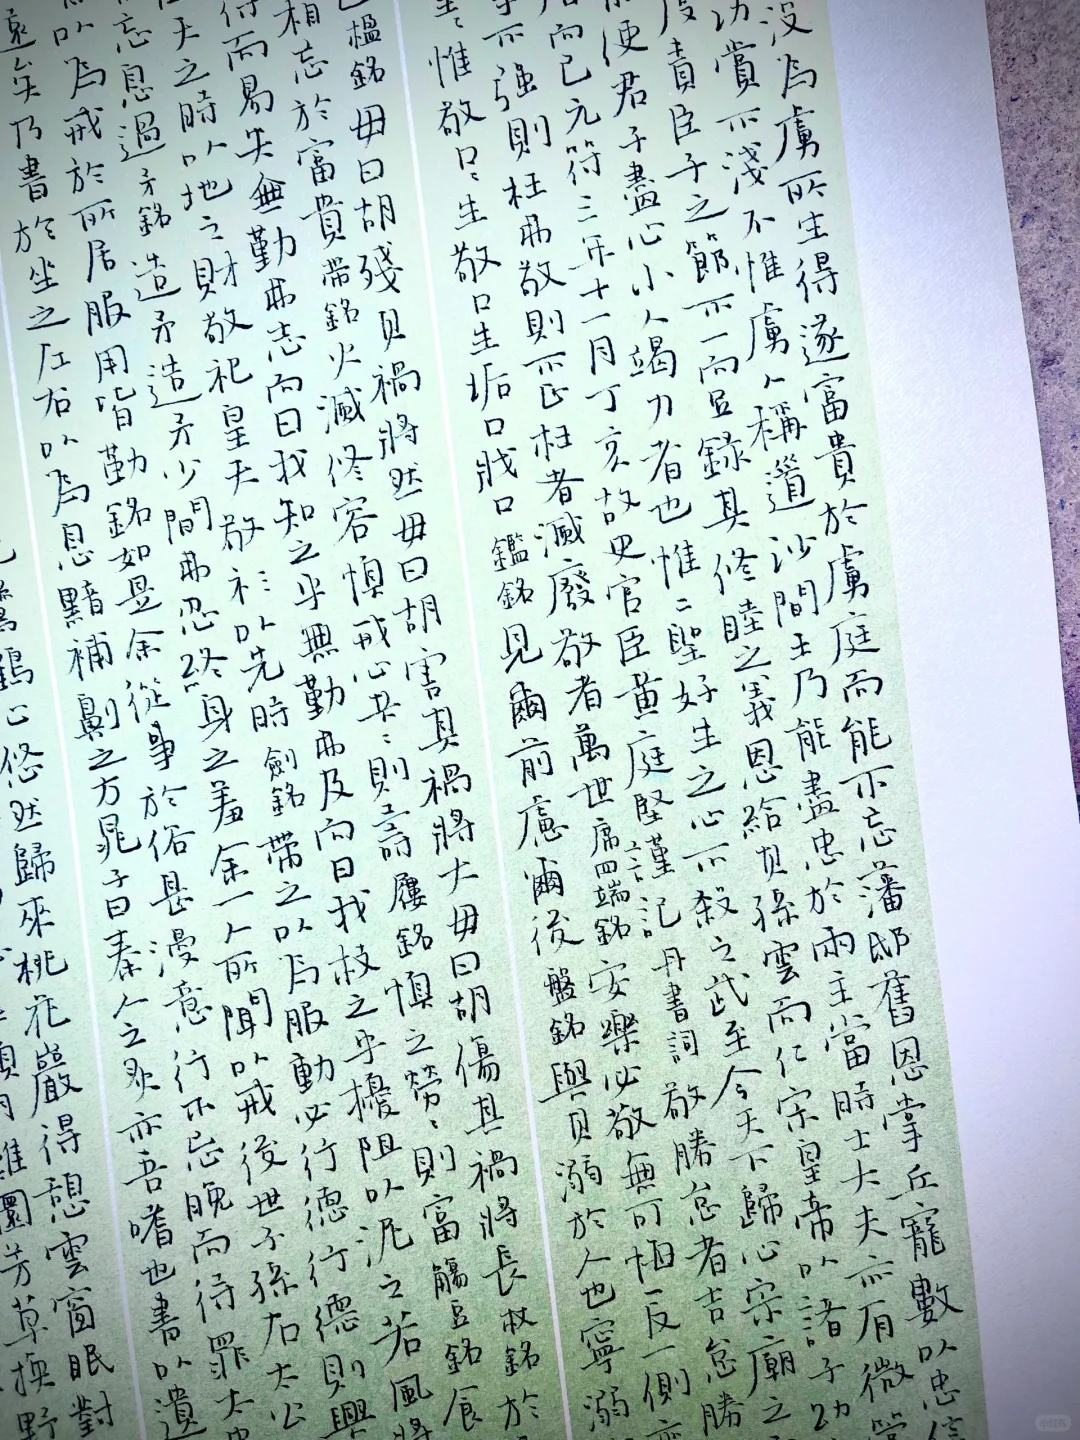 没為虜所生得遂富貴於虜庭而能不忘藩邸舊恩掌丘寵數以忠信
功賞不淺不惟虜人稱道沙間王乃能盡忠於兩主當時士大夫亦有微
度責臣子之節不一而且錄其修睦之義恩給其孫雲而仁宗皇帝以諸子
使君子盡心小人竭力者也惟二聖好生之心不殺之武至今天下歸心宗廟之
而已元符三年十一月丁亥故史官臣黃庭堅謹記 丹書詞 敬勝怠者吉怠勝
不強則枉弗敬則不正枉者滅廢敬者萬世席四端銘安樂必敬無可怕一反一側
惟敬口〻生敬口生垢口戕口鑑銘見爾前慮爾後盤銘與其溺於人也寧溺
楹銘毋曰胡殘其禍將然毋曰胡害其禍將大毋曰胡傷其禍將長杖銘於
相忘於富貴帶銘火滅修容慎戒必共〻則壽屨銘慎之勞〻則富觴豆銘食
而易失無勤弗志而曰我知之乎無勤弗及而曰我杖之乎擾阻以泥之若風將
天之時以地之財敬祀皇天敬以先時劍銘帶之以為服動必行德行德則興
忘息過矛銘造矛造矛少間弗忍終身之羞余一人所聞以戒後世子孫右太公
以為戒於所居服用皆勒銘如是余從事於俗甚漫意行不忌晚而得罪
遠矣乃書於坐之左右以為息黥補劓之方晁子曰秦人之炙亦吾嗜也書以遺
心悠然歸來桃花巖得憩雲窗眠對
芳草換野